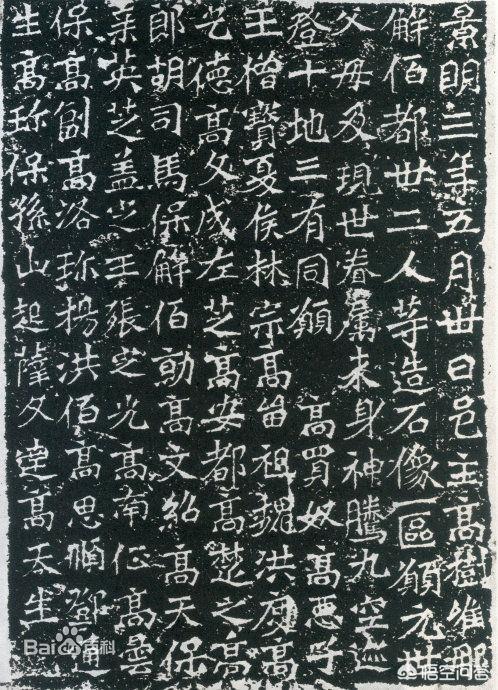 景明三年五月卅日邑主高樹唯那
解佰都卅二人等造石像一區願元世
父母及現世眷屬来身神騰九空迹
登十地三有同願 高買奴高惡子
王僧寳夏侯林宗高留祖魏洪慶高
乞德高文成左芝高安都高楚之高
郎胡司馬保解佰勍高文紹高天保
英芝盖定王張定光高南征高曇
保高副高洛珎楊洪佰高思順鄧通
生高珎保孫山起薩文達高天生
Baidu百科
悟空问答